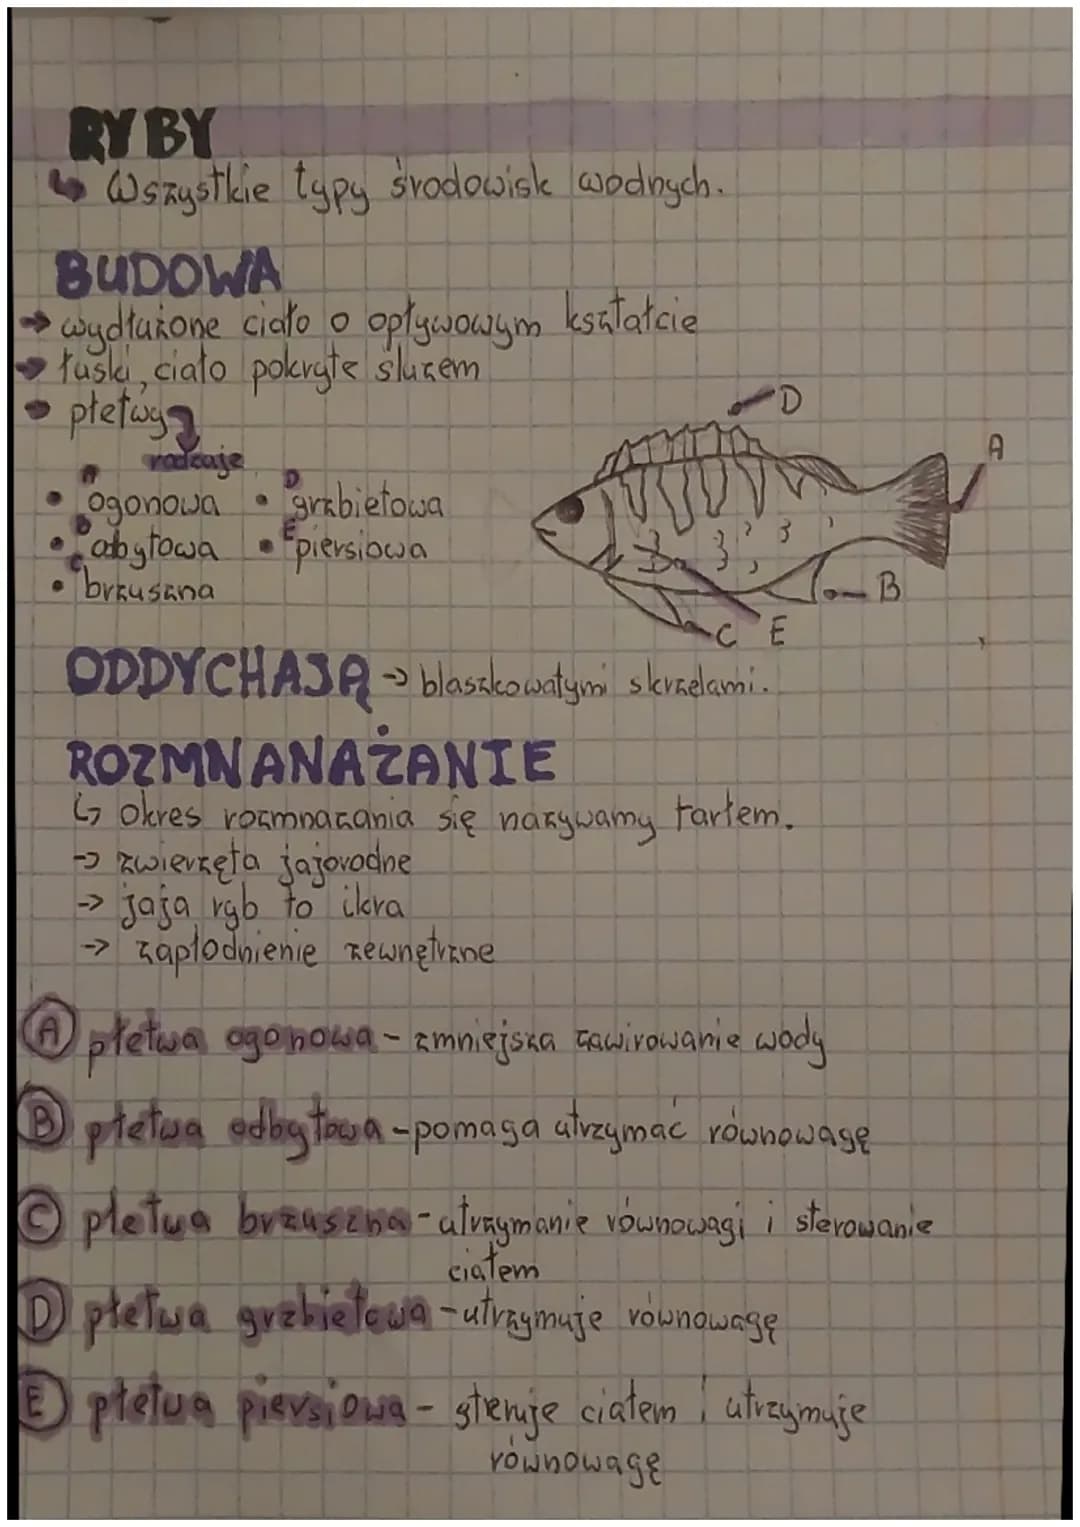 RYBY
↳ Wszystkie typy środowisk wodnych.
BUDOWA
→ wydłużone ciało o opływowym kształcie
→ łuski, ciało pokryte śluzem
→ płetwy
rodzaje
A D
• ogonowa • grzbietowa
B E
• odbytowa • piersiowa
C
• brzuszna
D
A
B
C E
ODDYCHAJĄ → blaszkowatymi skrzelami.
ROZMNANAŻANIE
↳ Okres rozmnazania się nazywamy tarłem.
→ zwierzęta jajorodne
→ jaja ryb to ikra
→ zapłodnienie zewnętrzne
A płetwa ogonowa - zmniejsza zawirowanie wody
B płetwa odbytowa - pomaga utrzymać równowagę
C płetwa brzuszna - utrzymanie równowagi i sterowanie
ciałem
D płetwa grzbietowa - utrzymuje równowagę
E płetwa piersiowa - steruje ciałem i utrzymuje
równowagę